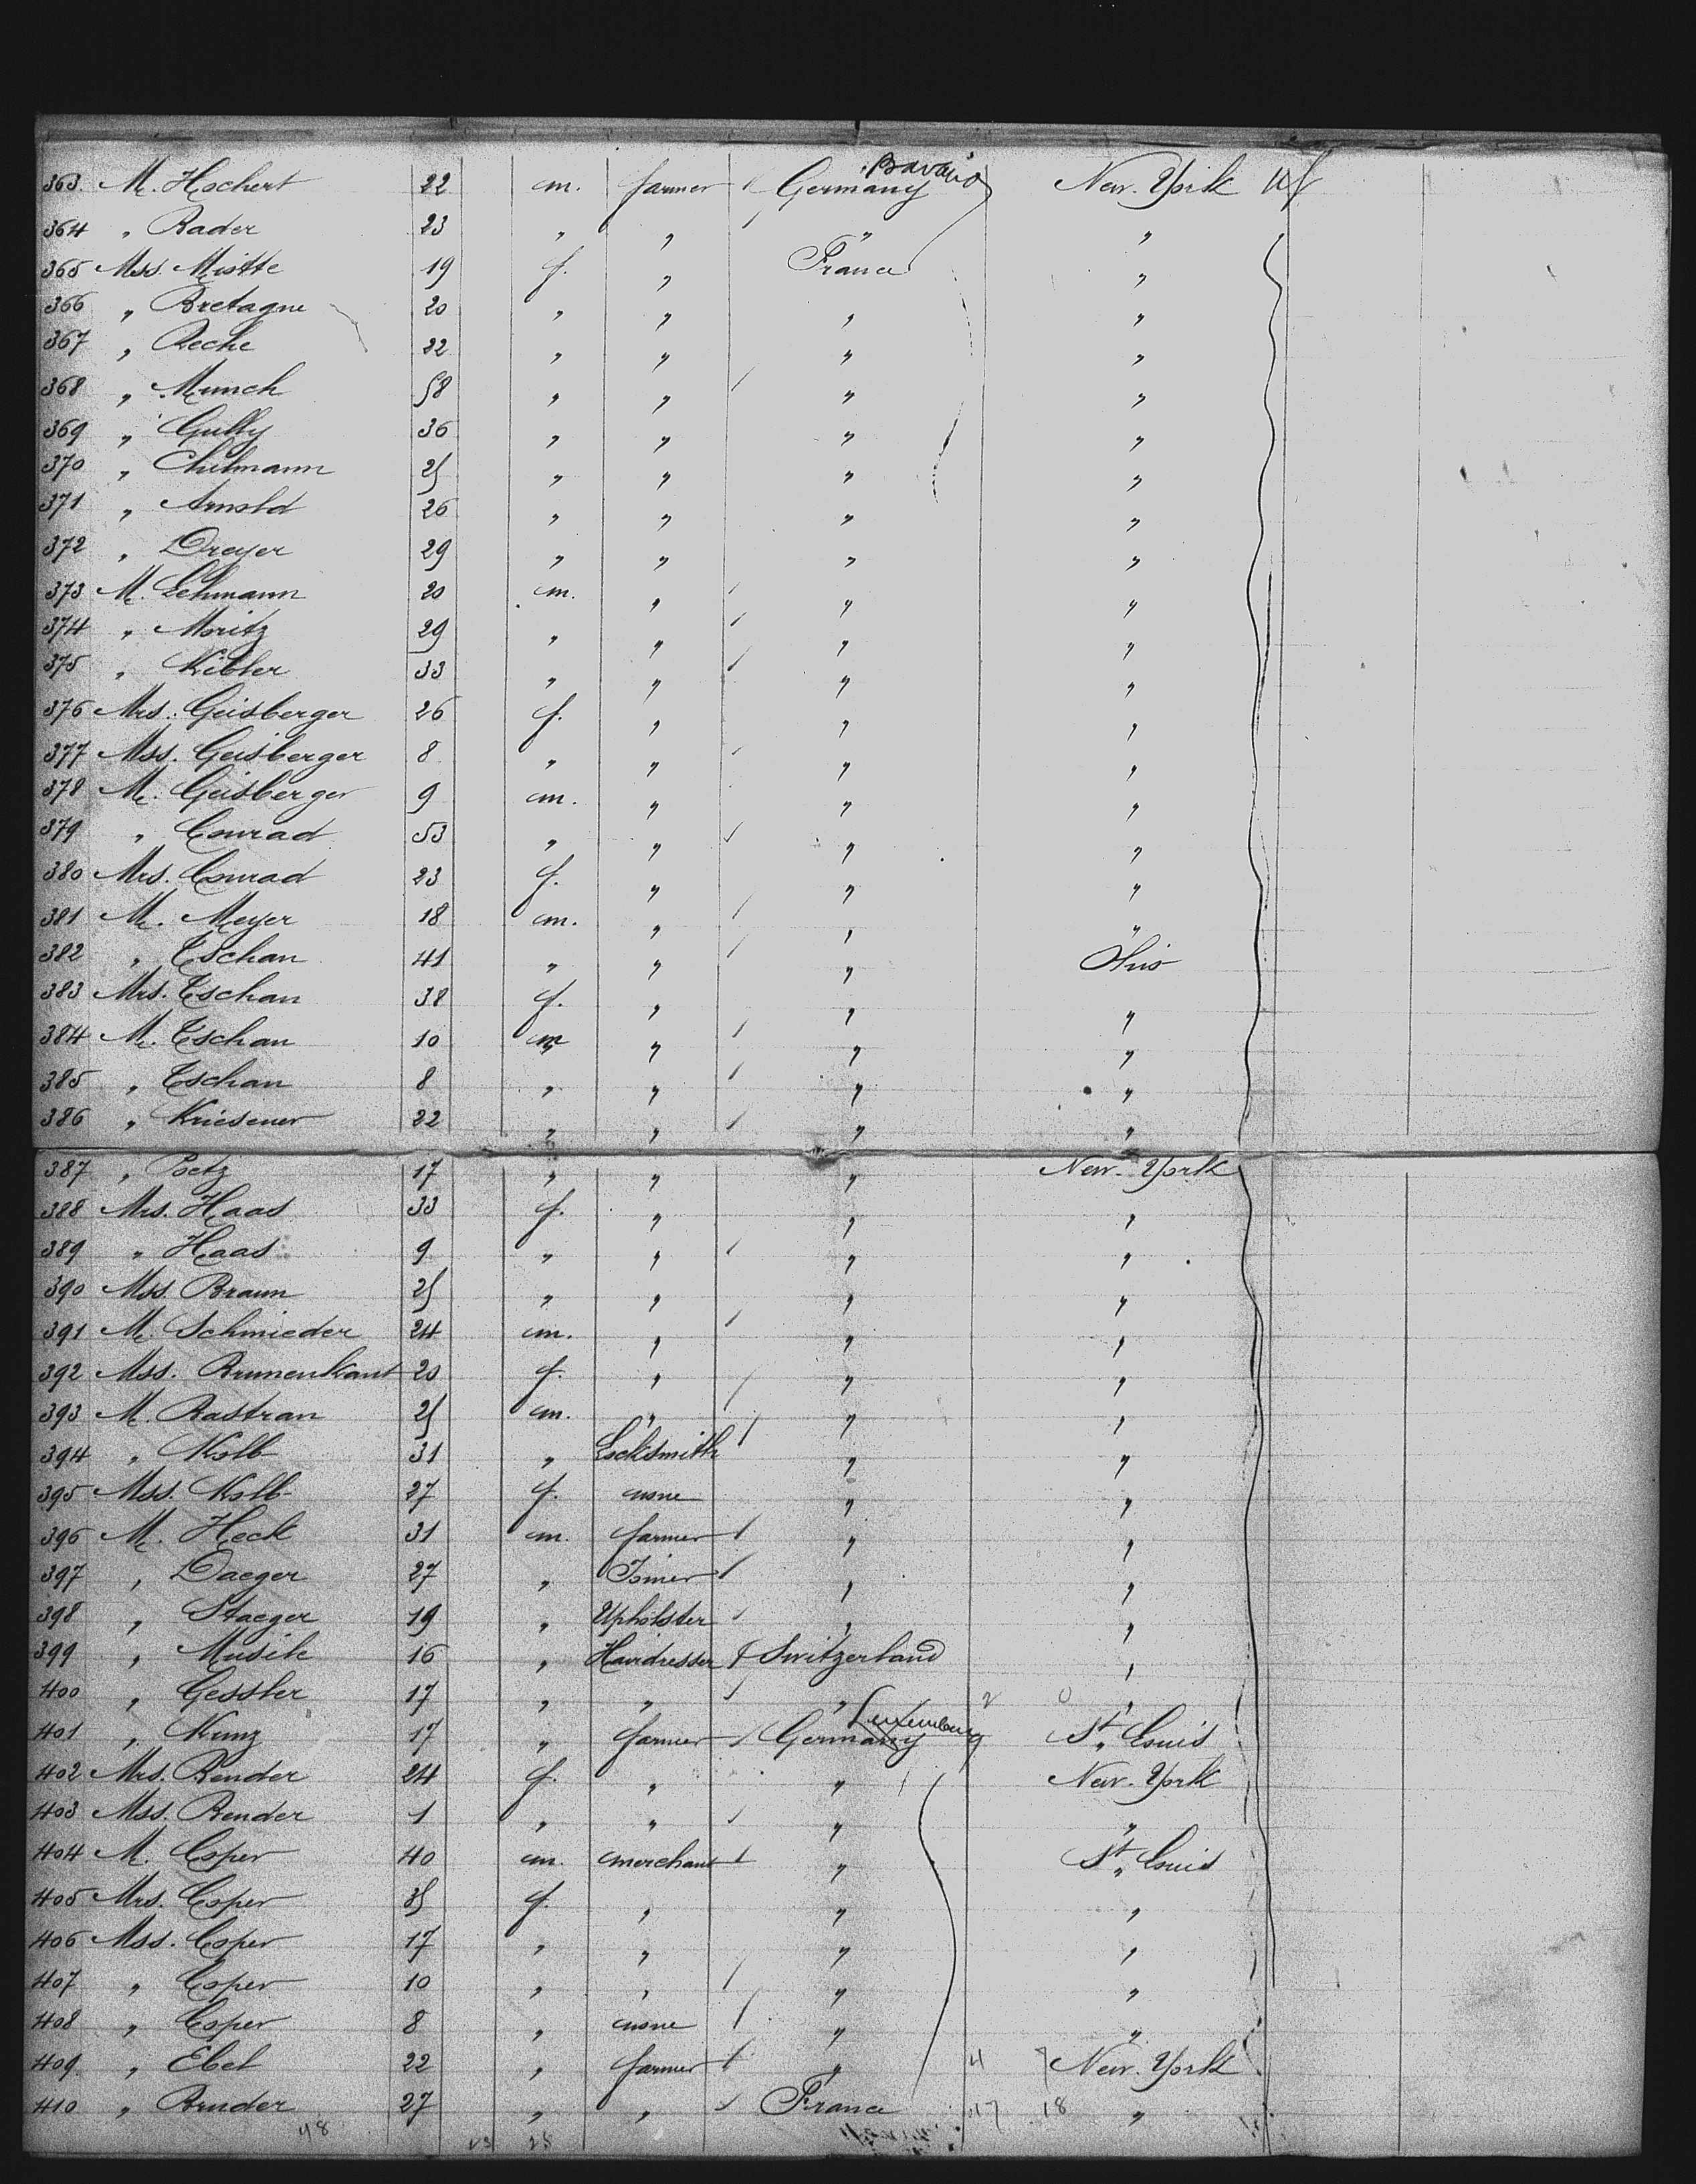 363 M. Hochert 22 m. farmer Germany Bavaria New-York
364 " Rader 23 " " " "
365 Mss. Miotte 19 f. " France "
366 " Bretagne 20 " " " "
367 " Reche 22 " " " "
368 " Munch 58 " " " "
369 " Gully 36 " " " "
370 " Chilmann 25 " " " "
371 " Arnold 26 " " " "
372 " Dreyer 29 " " " "
373 M. Lehmann 20 m. " " "
374 " Moritz 29 " " " "
375 " Kibler 33 " " " "
376 Mrs. Geisberger 26 f. " " "
377 Mss. Geisberger 8 " " " "
378 M. Geisberger 9 m. " " "
379 " Conrad 53 " " " "
380 Mrs. Conrad 23 f. " " "
381 M. Meyer 18 m. " " "
382 " Tschan 41 " " " Ohio
383 Mrs. Tschan 38 f. " " "
384 M. Tschan 10 m " " "
385 " Tschan 8 " " " "
386 " Kriesener 22 " " " "
387 " Poetz 17 " " " New-York
388 Mrs. Haas 33 f. " " "
389 " Haas 9 " " " "
390 Mss. Braun 25 " " " "
391 M. Schmieder 24 m. " " "
392 Mss. Brunenkant 20 f. " " "
393 M. Rastran 25 m. " " "
394 " Kolb 31 " Locksmith " "
395 Mss. Kolb 27 f. none " "
396 M. Heck 31 m. farmer " "
397 " Daeger 27 " Joiner " "
398 " Staeger 19 " Upholster " "
399 " Musik 16 " Hairdresser Switzerland "
400 " Gessler 17 " " " 2 0 "
401 " Kunz 17 " farmer Germany Luxemburg St. Louis
402 Mrs. Bender 24 f. " " New-York
403 Mss. Bender 1 " " " "
404 M. Coper 40 m. merchant " St. Louis
405 Mrs. Coper 35 f. " " "
406 Mss. Coper 17 " " " "
407 " Coper 10 " " " "
408 " Coper 8 " none " "
409 " Ebel 22 " farmer " 4 7 New-York
410 " Bruder 27 " " France 17 18 "
48 23 25